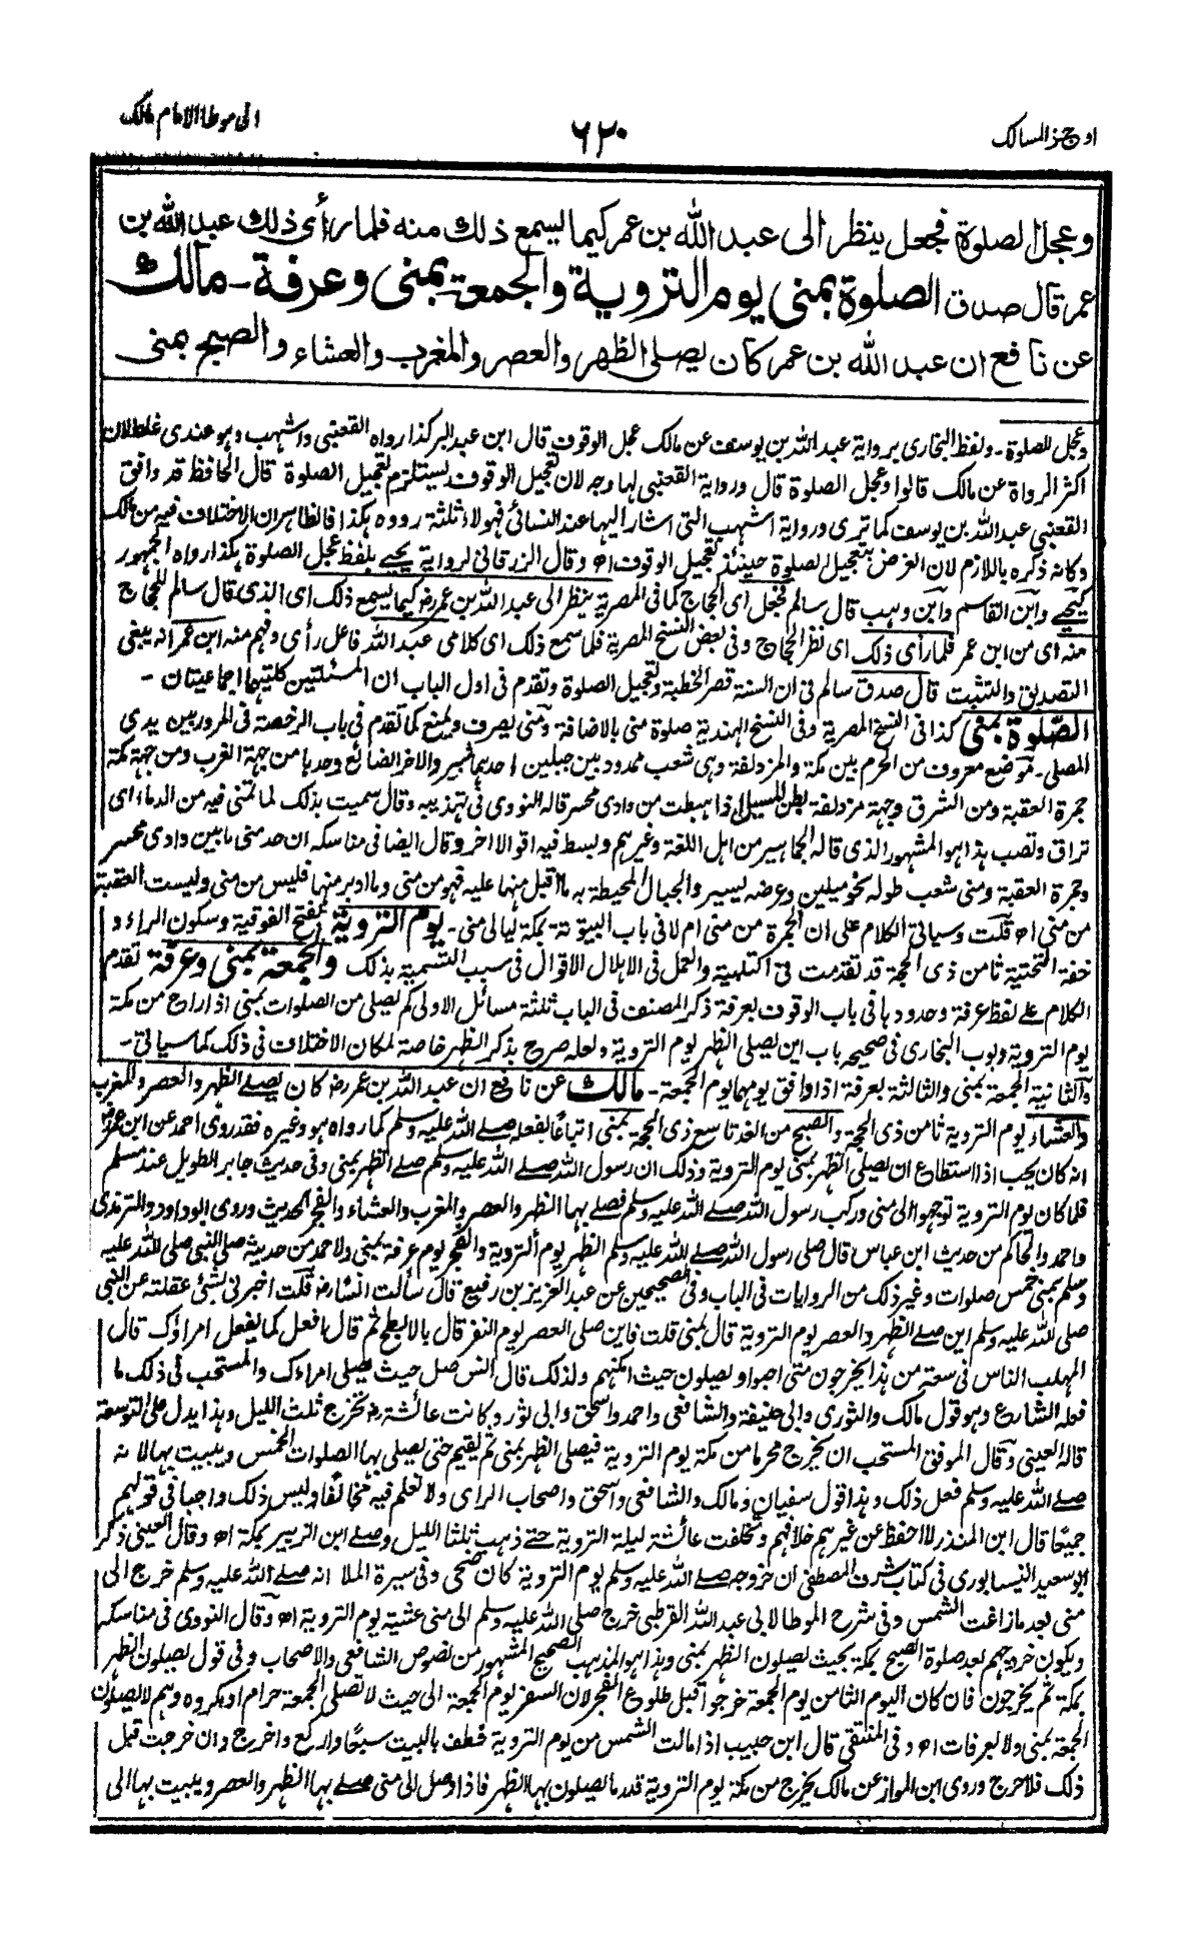 اوجز المسالك
٦٢٠
الى موطا الامام مالك
وعجل الصلوة فجعل ينظر الى عبد الله بن عمر كيما يسمع ذلك منه فلما رأى ذلك عبد الله بن
عمر قال صدق الصلوة بمنى يوم التروية والجمعة بمنى وعرفة ـ مالك
عن نافع ان عبد الله بن عمر كان يصلى الظهر والعصر والمغرب والعشاء والصبح بمنى
وعجل للصلوة ـ ولفظ البخارى برواية عبد الله بن يوسف عن مالك عجل الوقوف قال ابن عبد البر كذا رواه القعنبى واشهب وهو عندى غلط لان
اكثر الرواة عن مالك قالوا وعجل الصلوة قال ورواية القعنبى لها وجه لان تعجيل الوقوف يستلزم تعجيل الصلوة قال الحافظ قد وافق
القعنبى عبد الله بن يوسف كما ترى ورواية اشهب التى اشار اليها عند النسائى فهولاء ثلثة رووه هكذا فالظاهر ان الاختلاف فيه من مالك
وكانه ذكره باللازم لان الغرض بتعجيل الصلوة حينئذ تعجيل الوقوف اه وقال الزرقانى لرواية يحيے بلفظ عجل الصلوة هكذا رواه الجمهور
كيحيے وابن القاسم وابن وهب قال سالم فجعل اى الحجاج كما فى المصرية ينظر الى عبد الله بن عمر رض كيما يسمع ذلك اى الذى قال سالم للحجاج
منه اى من ابن عمر فلما رأى ذلك اى نظر الحجاج وفى بعض النسخ المصرية فلما سمع ذلك اى كلامى عبد الله فاعل رأى وفهم منه ابن عمر انه يبغى
التصديق والتثبت قال صدق سالم فى ان السنة قصر الخطبة وتعجيل الصلوة وتقدم فى اول الباب ان المسئلتين كلتيهما اجماعيتان ـ
الصلوة بمنى كذا فى النسخ المصرية وفى النسخ الهندية صلوة منى بالاضافة ومنى يصرف ويمنع كما تقدم فى باب الرخصة فى المرور بين يدى
المصلى ـ موضع معروف من الحرم بين مكة والمزدلفة وهى شعب ممدود بين جبلين احدهما ثبير والاخر الضائع وحدها من جهة الغرب ومن جهة مكة
جمرة العقبة ومن الشرق وجهة مزدلفة بطن المسيل اذا هبطت من وادى محسر قاله النووى فى تهذيبه وقال سميت بذلك لما تمنى فيه من الدماء اى
تراق وتصب هذا هو المشهور الذى قاله الجماهير من اهل اللغة وغيرهم وبسط فيه اقوالا اخر وقال ايضا فى مناسكه ان حد منى ما بين وادى محسر
وجمرة العقبة ومنى شعب طوله نحو ميلين وعرضه يسير والجبال المحيطة به ما اقبل منها عليه فهو من منى وما ادبر منها فليس من منى وليست العقبة
من منى اه قلت وسياتى الكلام على ان الجمرة من منى ام لا فى باب البيتوتة بمكة ليالى منى ـ يوم التروية بفتح الفوقية وسكون الراء و
خفة التحتية ثامن ذى الحجة قد تقدمت فى التلبية والعمل فى الاهلال الاقوال فى سبب التسمية بذلك والجمعة بمنى وعرفة تقدم
الكلام علے لفظ عرفة وحدودها فى باب الوقوف بعرفة ذكر المصنف فى الباب ثلثة مسائل الاولى كم يصلى من الصلوات بمنى اذا راح من مكة
يوم التروية وبوب البخارى فى صحيحه باب اين يصلى الظهر يوم التروية ولعله صرح بذكر الظهر خاصة لمكان الاختلاف فى ذلك كما سياتى ـ
والثانية الجمعة بمنى والثالثة بعرفة اذا وافق يومهما يوم الجمعة ـ مالك عن نافع ان عبد الله بن عمر رض كان يصلے الظهر والعصر والمغرب
والعشاء يوم التروية ثامن ذى الحجة والصبح من الغد تاسع ذى الحجة بمنى اتباعًا لفعله صلے الله عليه وسلم كما رواه هو وغيره فقد روى احمد عن ابن عمر رض
انه كان يحب اذا استطاع ان يصلى الظهر بمنى يوم التروية وذلك ان رسول الله صلے الله عليه وسلم صلے الظهر بمنى وفى حديث جابر الطويل عند مسلم
فلما كان يوم التروية توجهوا الى منى وركب رسول الله صلے الله عليه وسلم فصلے بها الظهر والعصر والمغرب والعشاء والفجر الحديث وروى ابو داود والترمذى
واحمد والحاكم من حديث ابن عباس قال صلى رسول الله صلے الله عليه وسلم الظهر يوم التروية والفجر يوم عرفة بمنى ولاحمد من حديثه صلى النبى صلى الله عليه
وسلم بمنى خمس صلوات وغير ذلك من الروايات فى الباب وفى الصحيحين عن عبد العزيز بن رفيع قال سألت انسًا رض قلت اخبرنى بشئ عقلته عن النبى
صلى الله عليه وسلم اين صلے الظهر والعصر يوم التروية قال بمنى قلت فاين صلى العصر يوم النفر قال بالابطح ثم قال افعل كما يفعل امراؤك قال
المهلب الناس فى سعة من هذا يخرجون متى احبوا ويصلون حيث امكنهم ولذلك قال انس صل حيث يصلى امراءك والمستحب فى ذلك ما
فعله الشارع وهو قول مالك والثورى وابى حنيفة والشافعى واحمد واسحق وابى ثور وكانت عائشة رض تخرج ثلث الليل وهذا يدل على التوسعة
قاله العينى وقال الموفق المستحب ان يخرج محرما من مكة يوم التروية فيصلى الظهر بمنى ثم يقيم حتى يصلى بها الصلوات الخمس ويبيت بها لانه
صلے الله عليه وسلم فعل ذلك وهذا قول سفيان ومالك والشافعى واسحق واصحاب الراى ولا نعلم فيه مخالفًا وليس ذلك واجبا فى قولهم
جميعًا قال ابن المنذر لا احفظ عن غيرهم خلافهم وتخلفت عائشة ليلة التروية حتے ذهب ثلثا الليل وصلے ابن الزبير بمكة اه وقال العينى ذكر
ابو سعيد النيسابورى فى كتاب شرف المصطفى ان خروجه صلے الله عليه وسلم يوم التروية كان ضحى وفى سيرة الملا انه صلے الله عليه وسلم خرج الى
منى بعد ما زاغت الشمس وفى شرح الموطا لابى عبد الله القرطبى خرج صلى الله عليه وسلم الى منى عشية يوم التروية اه وقال النووى فى مناسكه
ويكون خروجهم بعد صلوة الصبح بمكة بحيث يصلون الظهر بمنى وهذا هو المذهب الصحيح المشهور من نصوص الشافعى والاصحاب وفى قول يصلون الظهر
بمكة ثم يخرجون فان كان اليوم الثامن يوم الجمعة خرجوا قبل طلوع الفجر لان السفر يوم الجمعة الى حيث لا تصلى الجمعة حرام او مكروه وهم لا يصلون
الجمعة بمنى ولا بعرفات اه وفى المنتقى قال ابن حبيب اذا مالت الشمس من يوم التروية فطف بالبيت سبعًا واركع واخرج وان خرجت قبل
ذلك فلا حرج وروى ابن المواز عن مالك يخرج من مكة يوم التروية قدر ما يصلون بها الظهر فاذا وصل الى منى صلے بها الظهر والعصر ويبيت بها الى